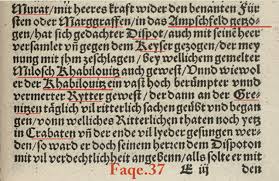 Murat/ mit heeres krafft wider den benanten Für
sten oder Marggraffen/ in das Ampschfeld gezo-
gen/ hat sich gedachter Dispot/ auch mit seinē heer
versamlet vn̄ gegen dem Keyser gezogen/ der mey
nung mit jhm zschlagen/ bey wellichem gemelter
Milosch Khabilouitz auch gewest/ Vnnd wiewol
er der Khabilouitz ein vast hoch berümpter vnnd
vermerter Rytter gewest/ der dann an der Gre-
nitzen täglich vil ritterlich sachen geübt vnd began
gen/ vonn welliches Ritterlichen thaten noch yetz
in Crabaten vn̄ der ende vil lyeder gesungen wer-
den/ so ward er doch seinem heren dem Dispoton
mit vil verdechtlichheit angeben/ als solte er mit
Faqe.37 E iij den